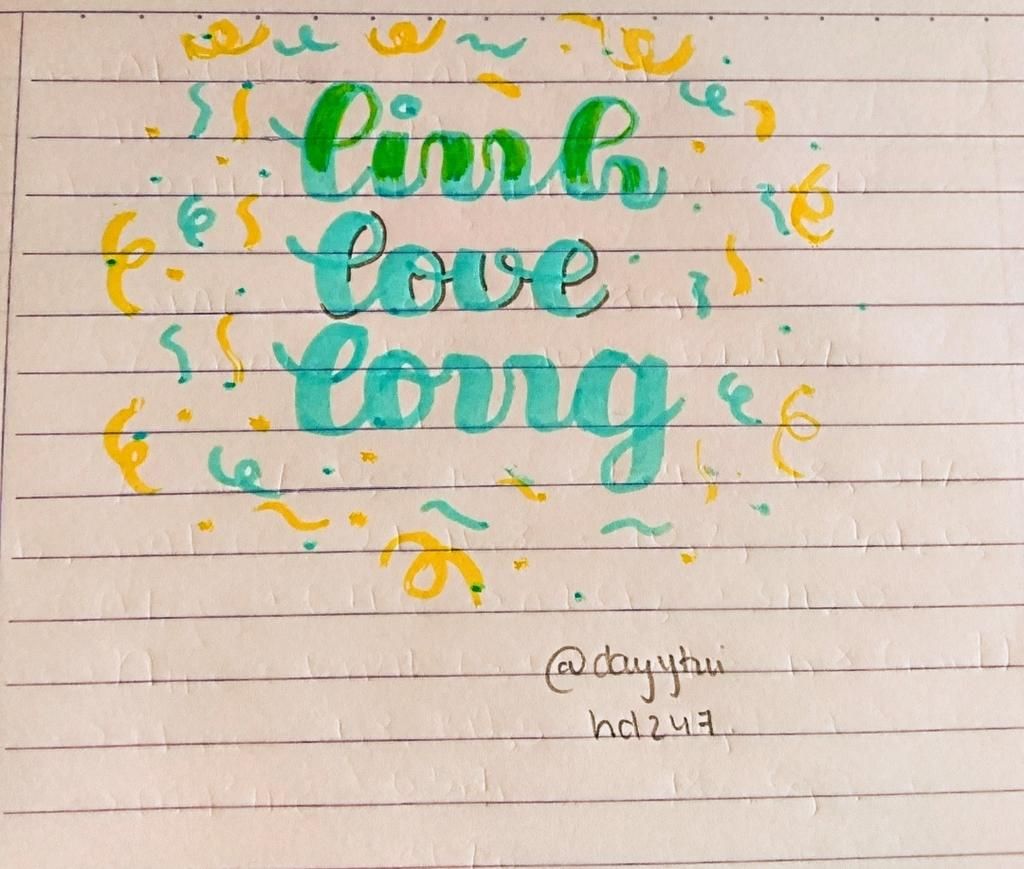 linh
love
long
@dayytui
hd247